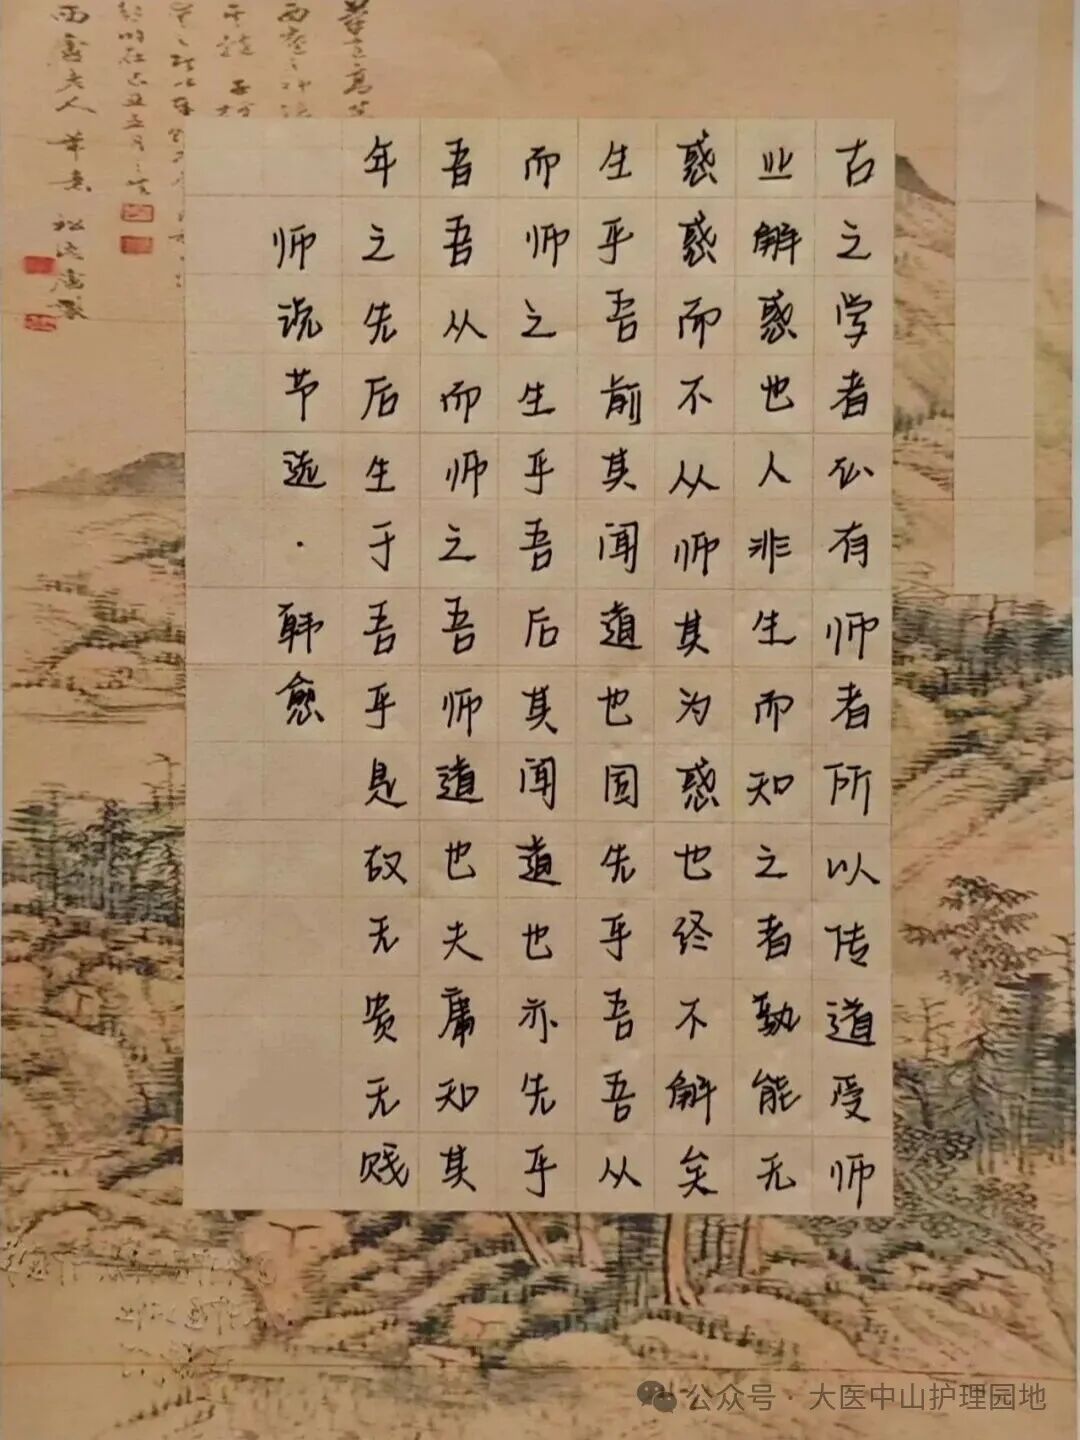 古之学者必有师者所以传道受师
业解惑也人非生而知之者孰能无
惑惑而不从师其为惑也终不解矣
生乎吾前其闻道也固先乎吾吾从
而师之生乎吾后其闻道也亦先乎
吾吾从而师之吾师道也夫庸知其
年之先后生于吾乎是故无贵无贱
师说节选·韩愈
公众号·大医中山护理园地